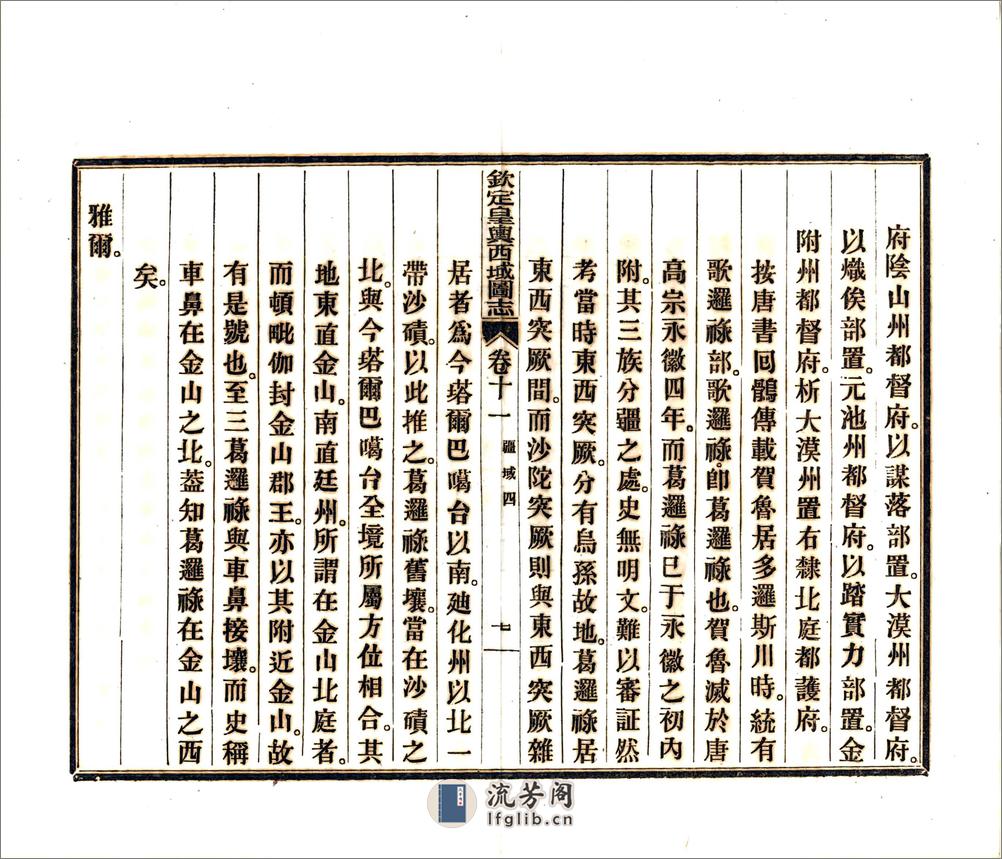 府陰山州都督府。以謀落部置。大漠州都督府。
以熾俟部置。元池州都督府。以踏實力部置。金
附州都督府。析大漠州置。右隸北庭都護府。
按唐書回鶻傳載賀魯居多邏斯川時。統有
歌邏祿部。歌邏祿。即葛邏祿也。賀魯滅於唐
高宗永徽四年。而葛邏祿已于永徽之初內
附。其三族分疆之處。史無明文。難以審証然
考當時東西突厥。分有烏孫故地。葛邏祿居
東西突厥間。而沙陀突厥則與東西突厥雜
欽定皇輿西域圖志 卷十一 疆域四 七
居者為今塔爾巴噶台以南。廸化州以北一
帶沙磧。以此推之。葛邏祿舊壤。當在沙磧之
北。與今塔爾巴噶台全境所屬方位相合。其
地東直金山。南直廷州。所謂在金山北庭者。
而頓毗伽封金山郡王。亦以其附近金山。故
有是號也。至三葛邏祿與車鼻接壤。而史稱
車鼻在金山之北。葢知葛邏祿在金山之西
矣。
雅爾。
流芳阁
lfglib.cn